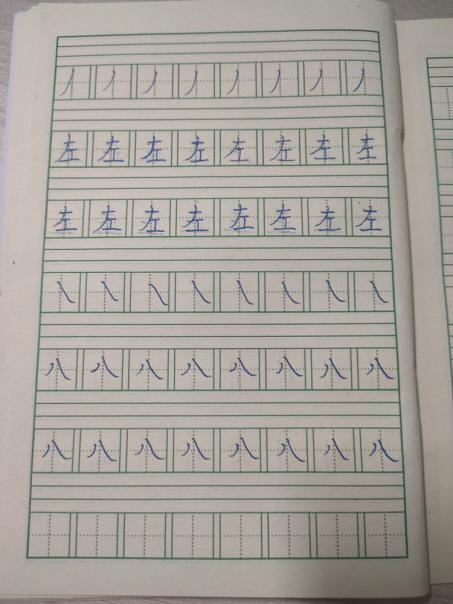 丿丿丿丿丿丿丿丿
左左左左左左左左
左左左左左左左左
㇏㇏㇏㇏㇏㇏㇏㇏
八八八八八八八八
八八八八八八八八